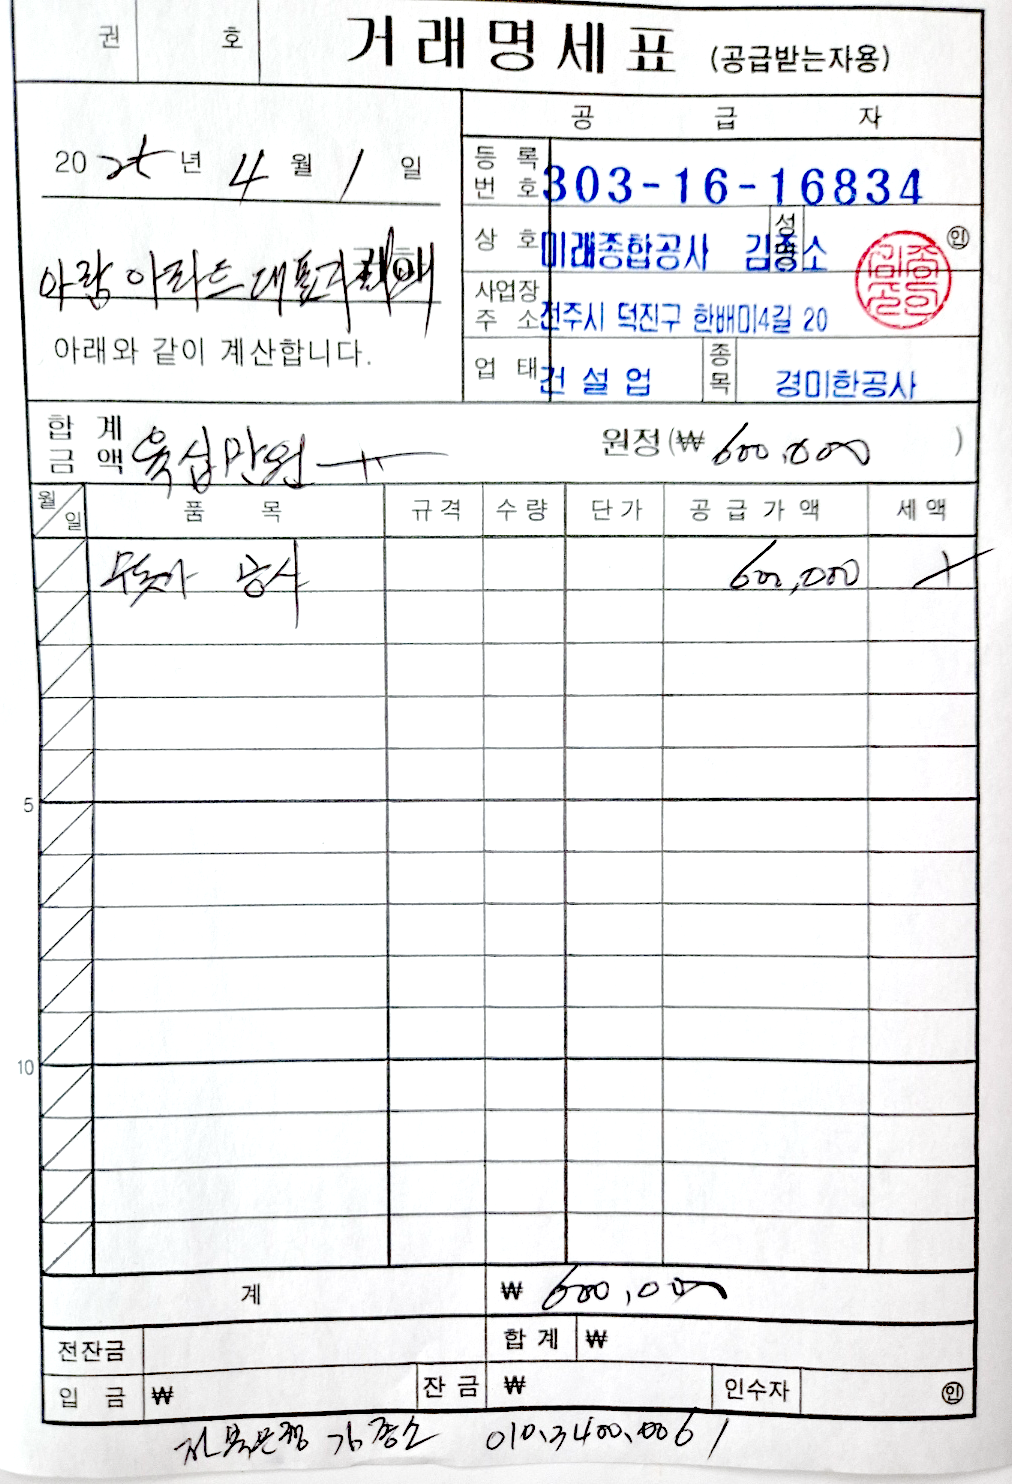 권 호 거래명세표 (공급받는자용)
공 급 자
2025년 4월 1일
등록번호 303-16-16834
상호 미래종합공사 성명 김종소 ㊞
아랑 아파트 대표자
사업장주소 전주시 덕진구 한배미4길 20
아래와 같이 계산합니다.
업태 건설업 종목 경미한공사
합계금액 육십만원 원정(₩ 600,000 )
월 일 품목 규격 수량 단가 공급가액 세액
공사 600,000
5
10
계 ₩ 600,000
전잔금 합계 ₩
입금 ₩ 잔금 ₩ 인수자 ㊞
전북은행 김종소 010.3400.0061